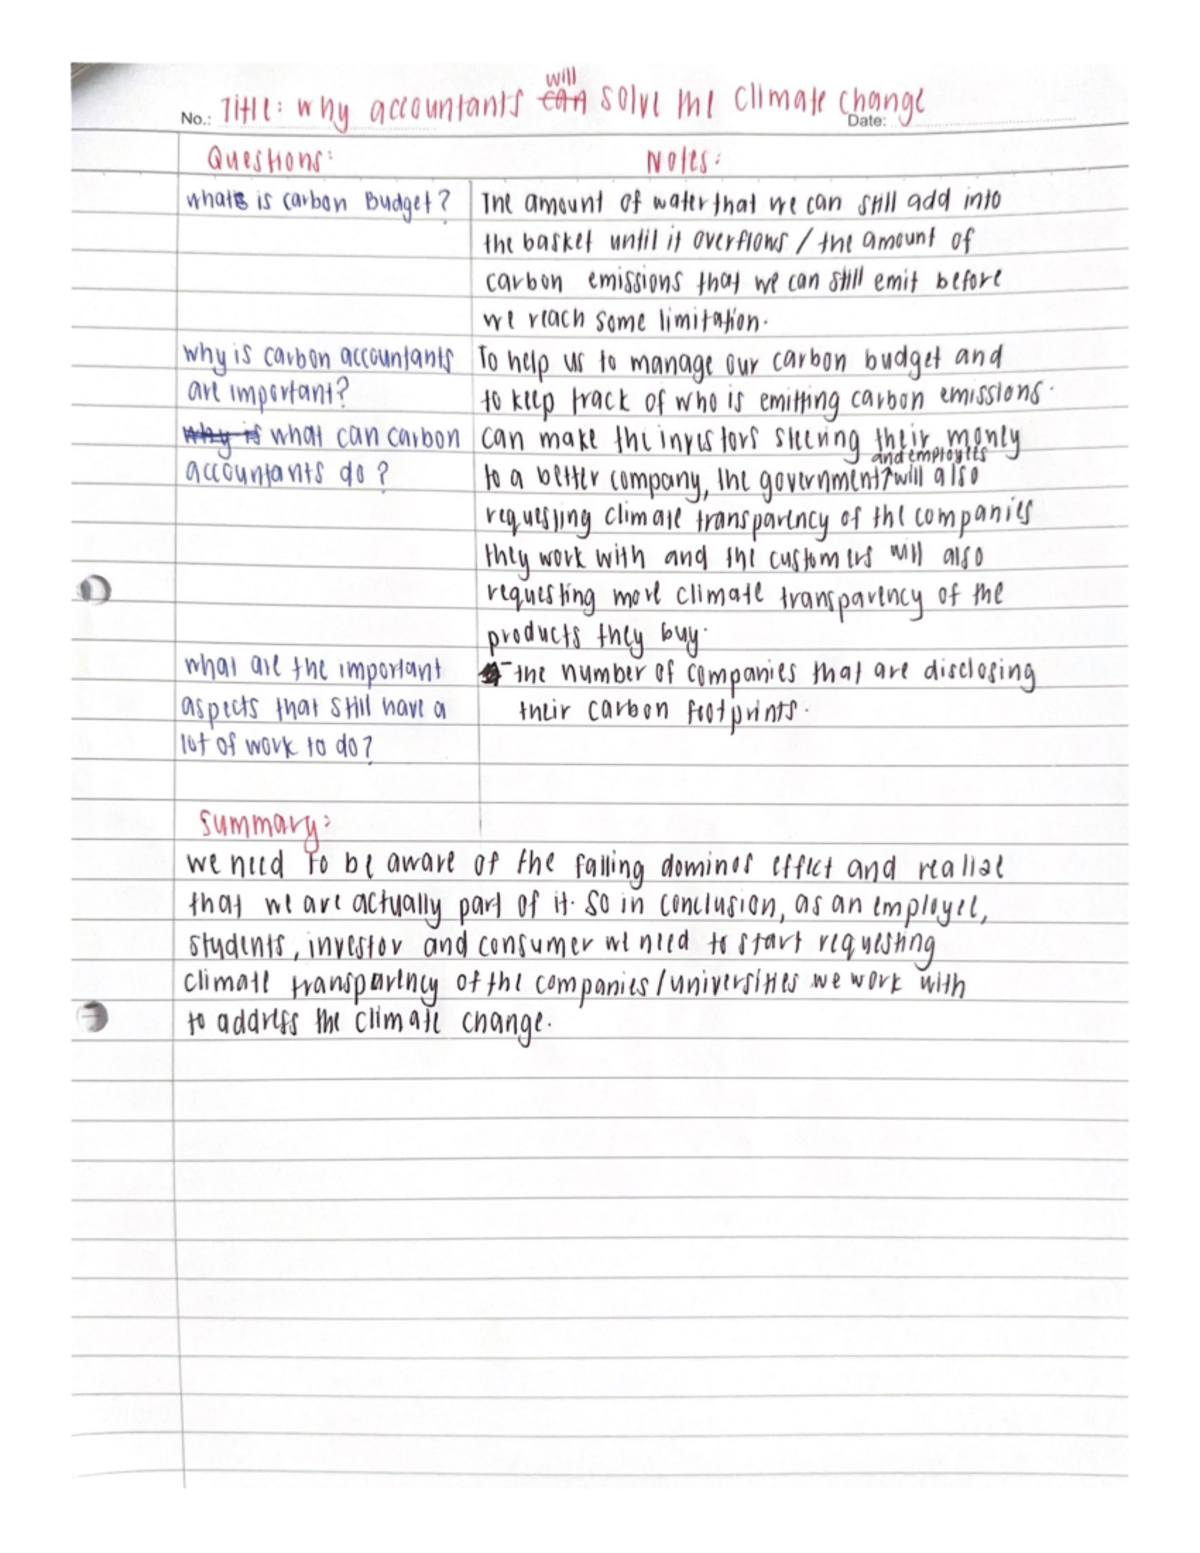 will
No.: Title: why accountants can solve the climate change
Date:
Questions:
Notes:
what's is carbon Budget?
The amount of water that we can still add into
the basket until it overflows / the amount of
carbon emissions that we can still emit before
we reach some limitation.
why is carbon accountants
are important?
To help us to manage our carbon budget and
to keep track of who is emitting carbon emissions.
why is what can carbon
accountants do?
can make the investors steering their money
and employees
to a better company, the government will also
requesting climate transparency of the companies
they work with and the customers will also
requesting more climate transparency of the
products they buy.
what are the important
aspects that still have a
lot of work to do?
- the number of companies that are disclosing
their carbon footprints.
Summary:
we need to be aware of the falling dominos effect and realize
that we are actually part of it. So in conclusion, as an employee,
students, investor and consumer we need to start requesting
climate transparency of the companies / universities we work with
to address the climate change.